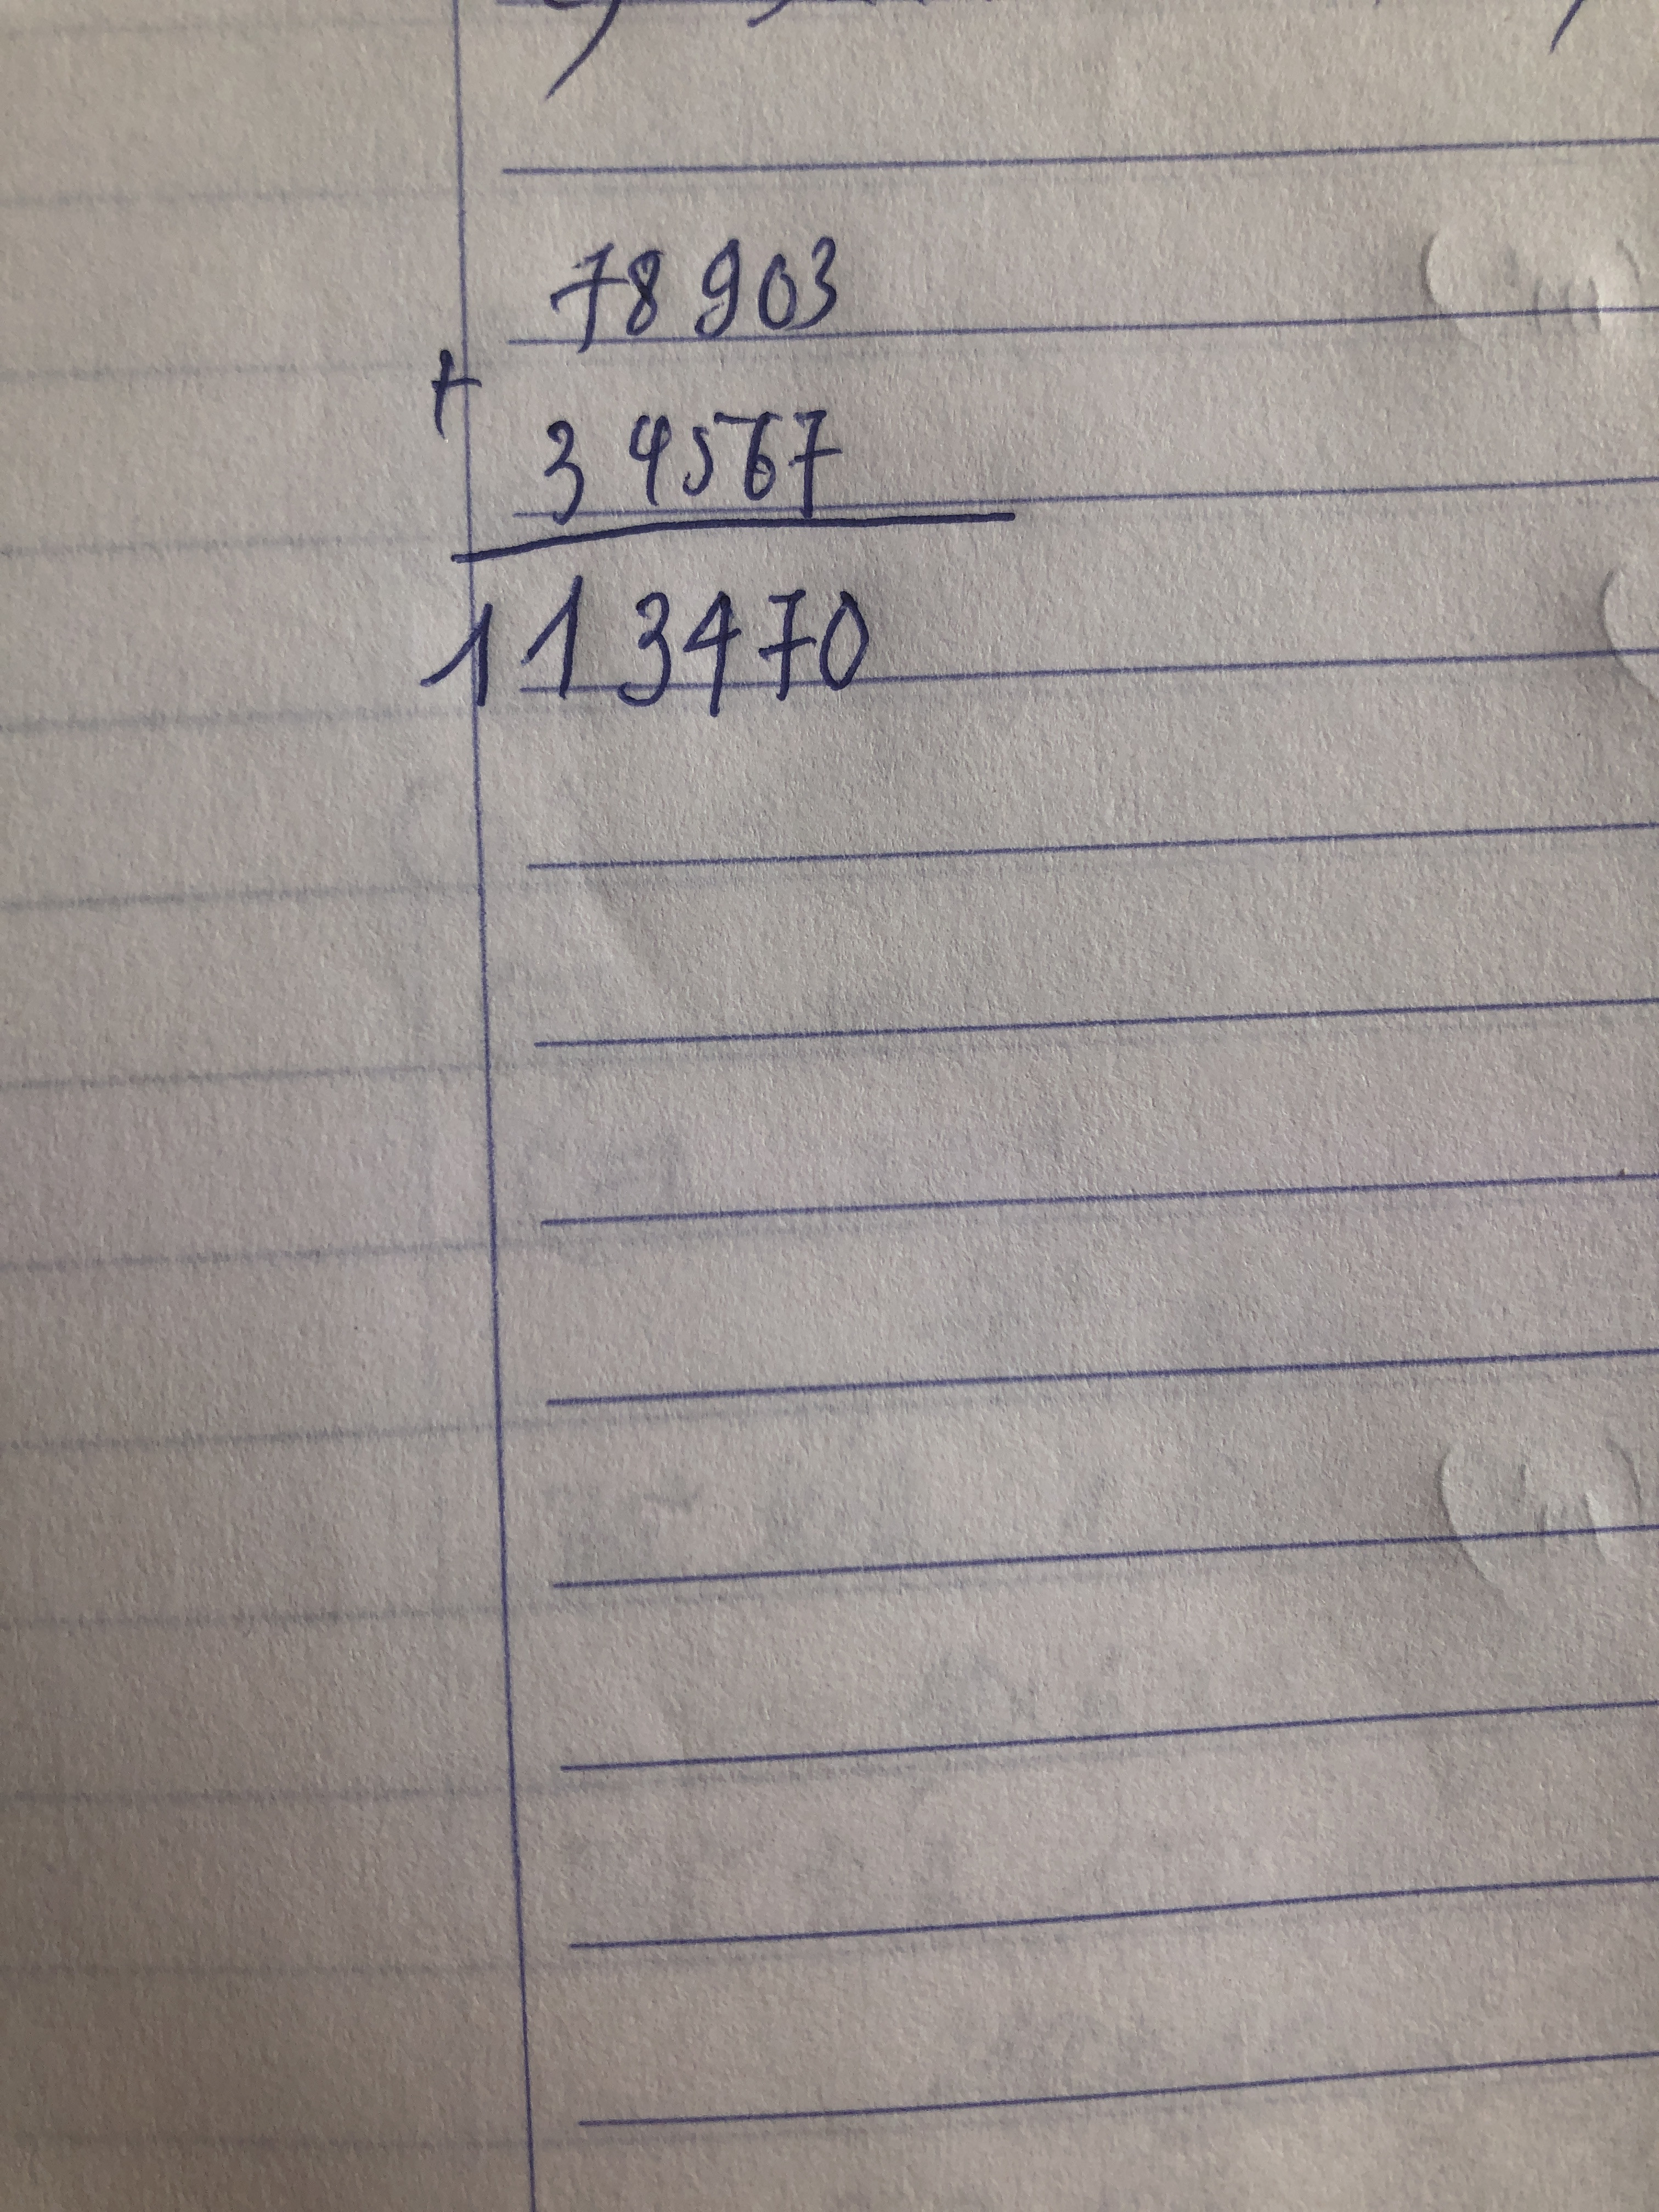 78 903
+
34567
113470